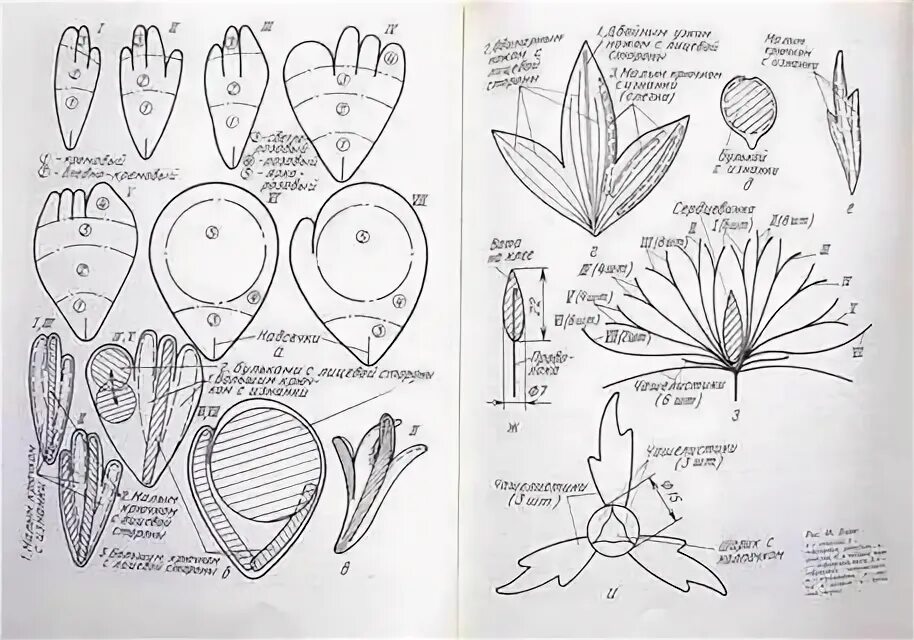 I
II
III
IV
① - кремовый
② - бледно-кремовый
③ - светло-
розовый
④ - розовый
⑤ - ярко-
розовый
V
VI
VII
Надсечки
а
I, III
II
IV, V
VI, VII
2. Бульками с лицевой стороны
1. Большим крюч-
ком с изнанки
1. Малым крючком
с изнанки
2. Малым
крючком
с лицевой
стороны
3. Большим крючком
с лицевой стороны
б
II
в
2. Двойным
ножом с
лицевой
стороны
1. Двойным узким
ножом с лицевой
стороны
3. Малым крючком
с изнанки
(слегка)
г
Булькой
с изнанки
д
Малым
крючком
с изнанки
е
Вата
на клее
22
Прово-
лока
Ф7
ж
Сердцевина
I (6 шт)
II (8 шт)
III (8 шт)
II
IV (4 шт)
V (4 шт)
VI (6 шт)
VII (2 шт)
III
IV
V
VII
Чашелистики
(6 шт)
з
Чашелистики
(3 шт)
Чашелистики
(3 шт)
Ф 15
Шарик с
и
Рис